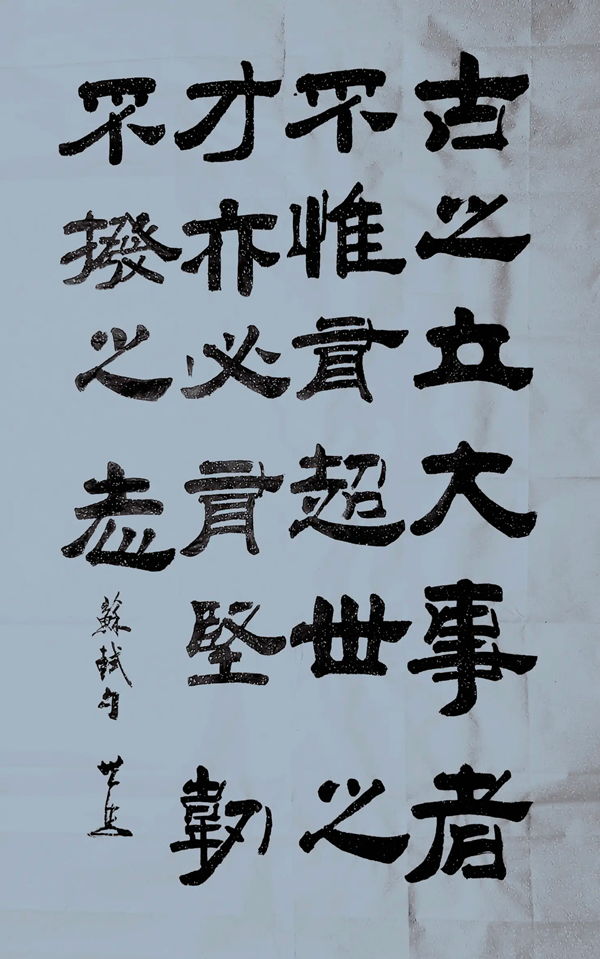 古之立大事者
不惟有超世之
才亦必有堅韌
不撥之志
蘇軾句